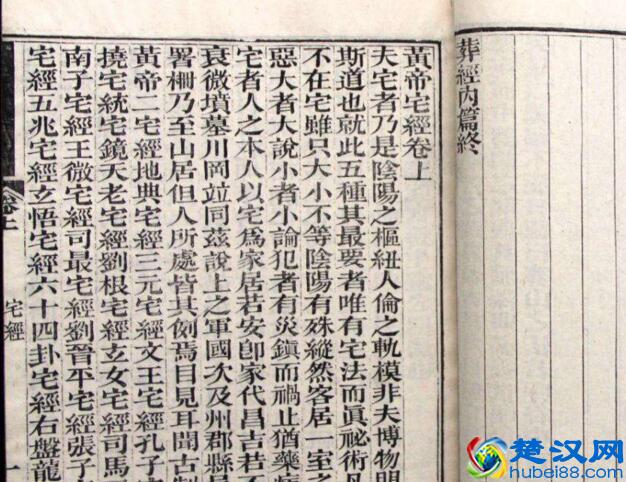 葬經內篇終
黃帝宅經卷上
夫宅者乃是陰陽之樞紐人倫之軌模非夫博物明
斯道也就此五種其最要者唯有宅法而眞祕術凡
不在宅雖只大小不等陰陽有殊縱然客居一室之
惡大者大說小者小論犯者有災鎮而禍止猶藥病
宅者人之本人以宅爲家居若安卽家代昌吉若不
衰微墳墓川岡竝同茲說上之軍國次及州郡縣
署柵乃至山居但人所處皆其例焉目見耳聞古制
黃帝二宅經地典宅經三元宅經文王宅經孔子宅
撓宅統宅鏡天老宅經劉根宅經玄女宅經司馬
南子宅經王微宅經司最宅經劉晉平宅經張子
宅經五兆宅經玄悟宅經六十四卦宅經右盤龍
卷上
宅經
一
楚汉网
hubei88.com